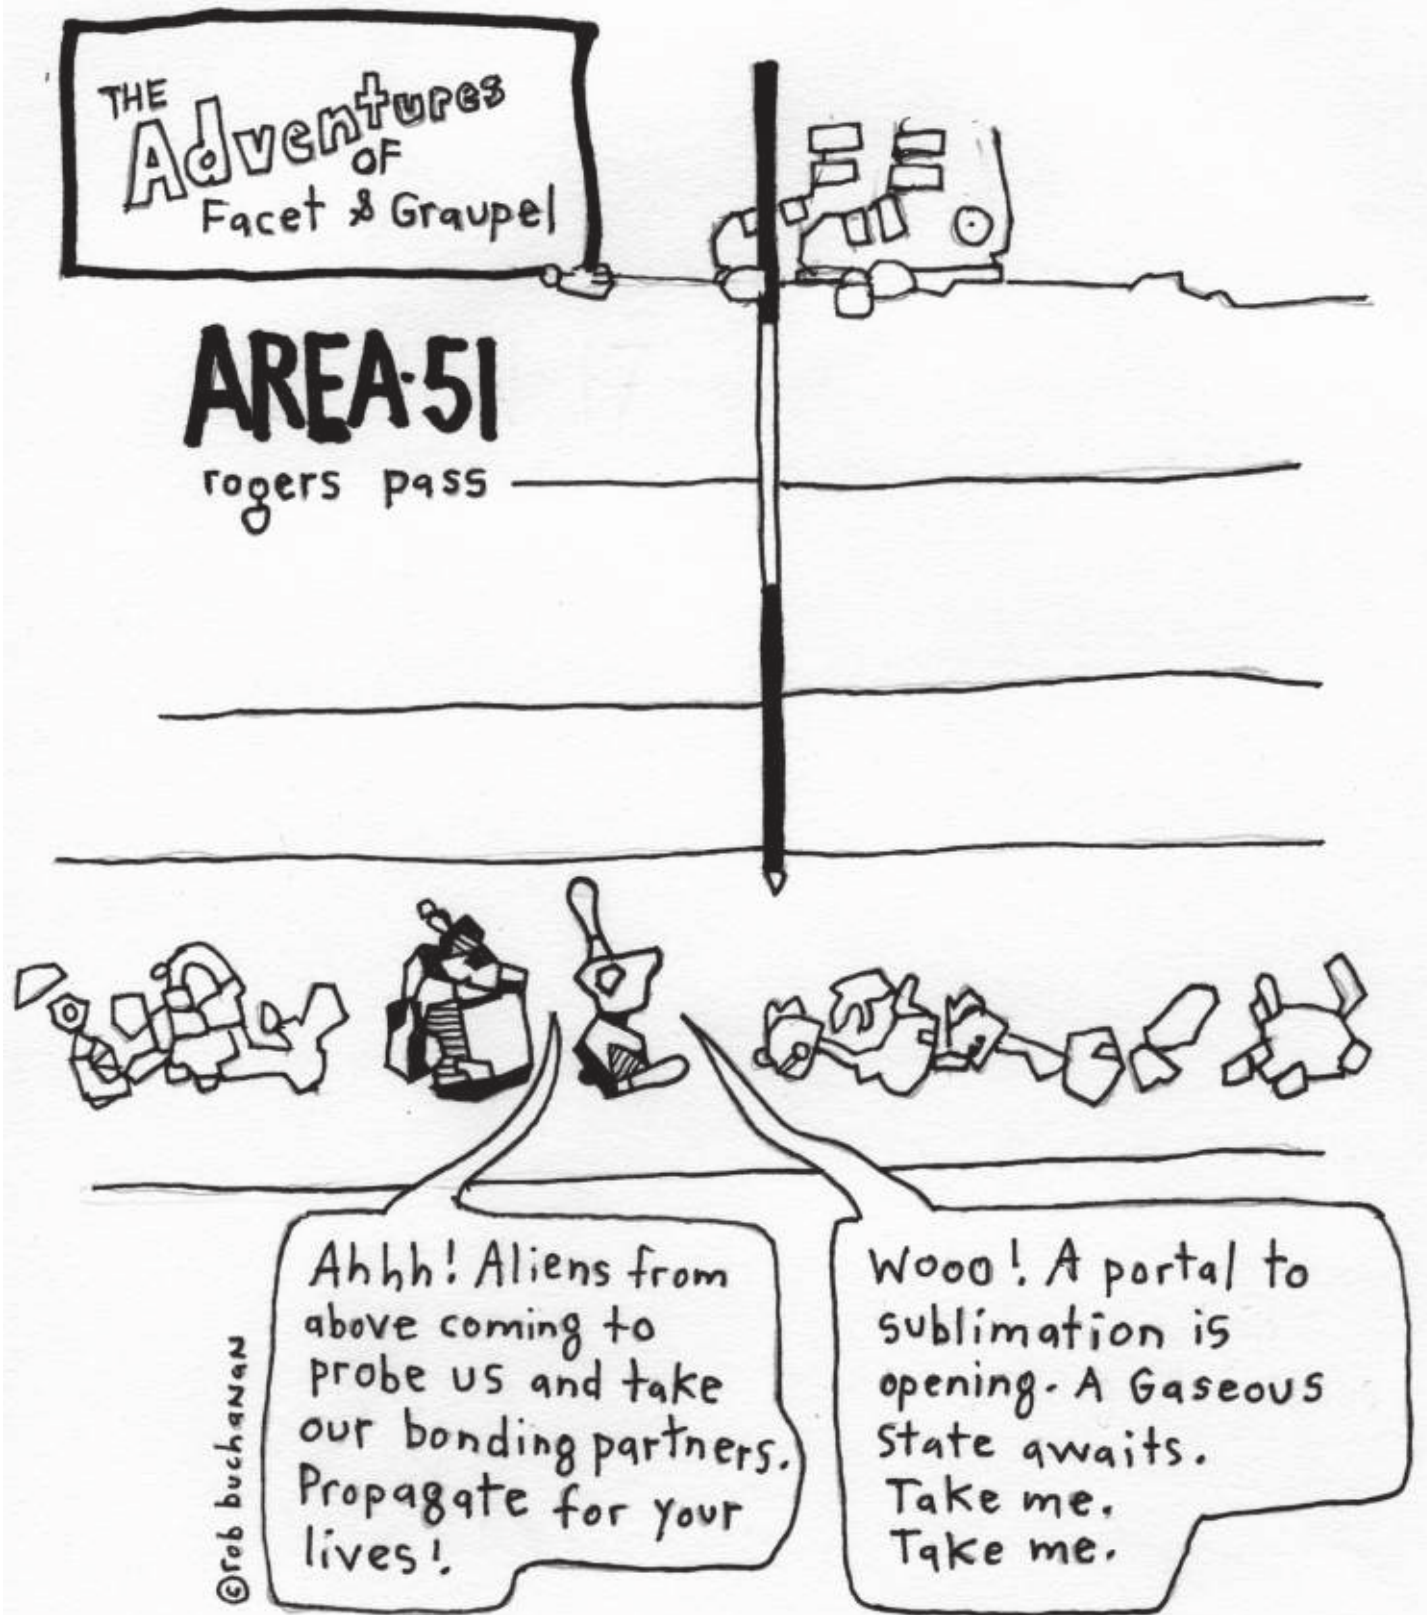 THE
Adventures
OF
Facet & Graupel
AREA·51
rogers pass
Ahhh! Aliens from
above coming to
probe us and take
our bonding partners.
Propagate for your
lives!
Wooo! A portal to
sublimation is
opening. A Gaseous
state awaits.
Take me.
Take me.
©rob buchanan